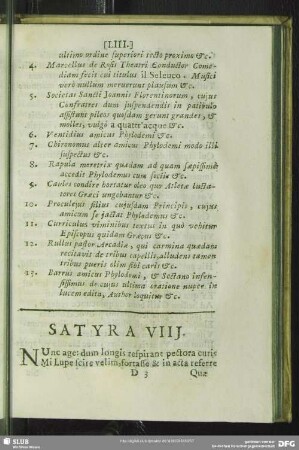 [LIII.]
ultimo ordine superiori tecto proximo &c.
4. Marcellus de Rysii Theatri Conductor Comœ-
diam fecit cui titulus il Seleuco. Musici
verò nullum meruerunt plausum &c.
5. Societas Sancti Joannis Florentinorum, cujus
Confratres dum suspendendis in patibulo
assistunt pileos quosdam gerunt grandes, &
molles, vulgò a quattr'acque &c.
6. Ventidius amicus Phylodemi &c.
7. Chironomus alter amicus Phylodemi modo illi
suspectus &c.
8. Rapala meretrix quædam ad quam sæpissimè
accedit Phylodemus cum sociis &c.
9. Caules condire hortatur oleo quo Atletæ lucta-
tores Græci ungebantur &c.
10. Proculejus filius cujusdam Principis, cujus
amicum se jactat Phylodemus &c.
11. Curriculus viminibus textus in quo vehitur
Episcopus quidam Græcus &c.
12. Rullus pastor Arcadia, qui carmina quædam
recitavit de tribus capellis, alludens tamen
tribus pueris olim sibi caris &c.
13. Barrus amicus Phylodemi, & Sectano infen-
sissimus de cujus ultima cratione nuper in
lucem edita, Author loquitur &c.
SATYRA VIIJ.
NUnc age: dum longis respirant pectora curis
Mi Lupe scire velim, fortasse & in acta referre
D 3 Quæ